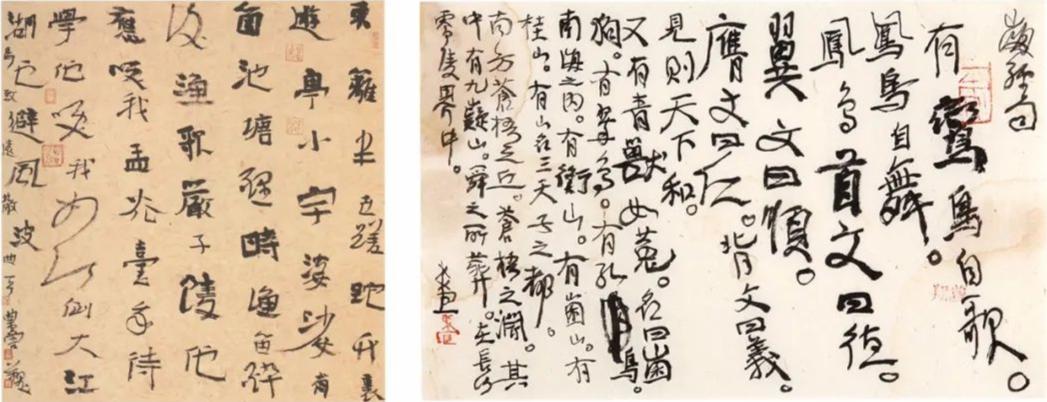 東籬半世蹉跎竹裏
遊亭小宇婆娑有
箇池塘醒時漁笛醉
後漁歌嚴子陵他
應笑我孟光臺我待
學他笑我如何倒大江
湖也避風波
馬致遠散曲一首
海經句
有鸞鳥自歌。
鳳鳥自舞。
鳳鳥首文曰德。
翼文曰順。
膺文曰仁。背文曰義。
見則天下和。
又有青獸如菟。名曰菌
狗。有翠鳥。有孔鳥。
南海之內。有衡山。有菌山。有
桂山。有山名三天子之都。
南方蒼梧之丘。蒼梧之淵。其
中有九嶷山。舜之所葬。在長沙
零陵界中。